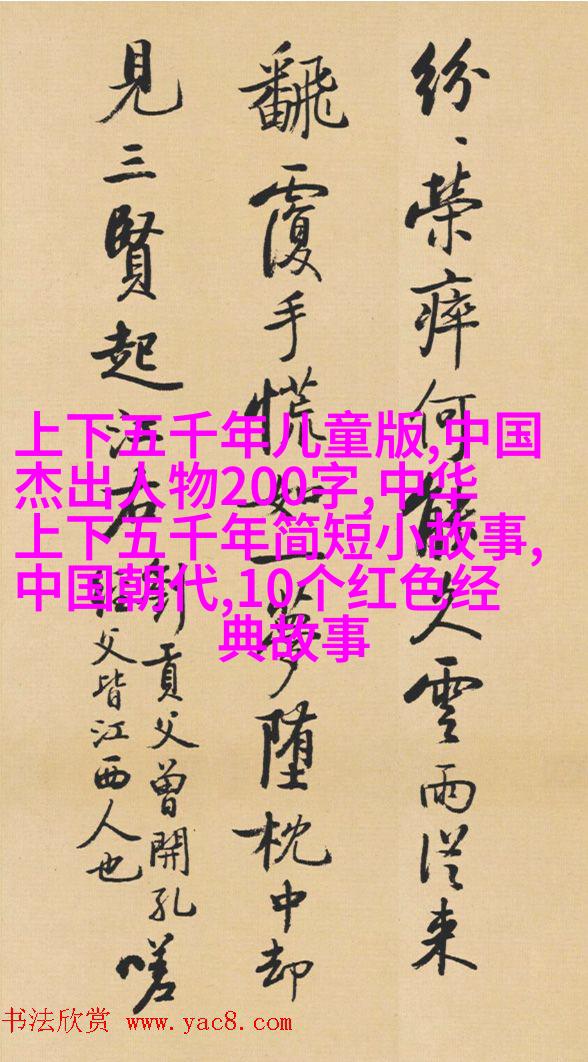 紛、榮瘁何能久雲雨從來
飜覆手慌如一夢墮枕中却
見三賢起江右
劉貢父曾開孔
經父皆江西人也
嗟
上下五千年儿童版,中国
杰出人物200字,中华
上下五千年简短小故事,
中国朝代,10个红色经
典故事
书法欣赏 www.yac8.com